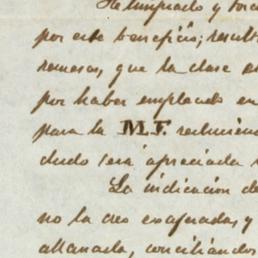 por este beneficio; result
remesas, que la clase
por haber empleado en
para la M.F. reduciendo
dudo será apreciada
La indicación de
no la creo exagerada, y
allanada, conciliándos